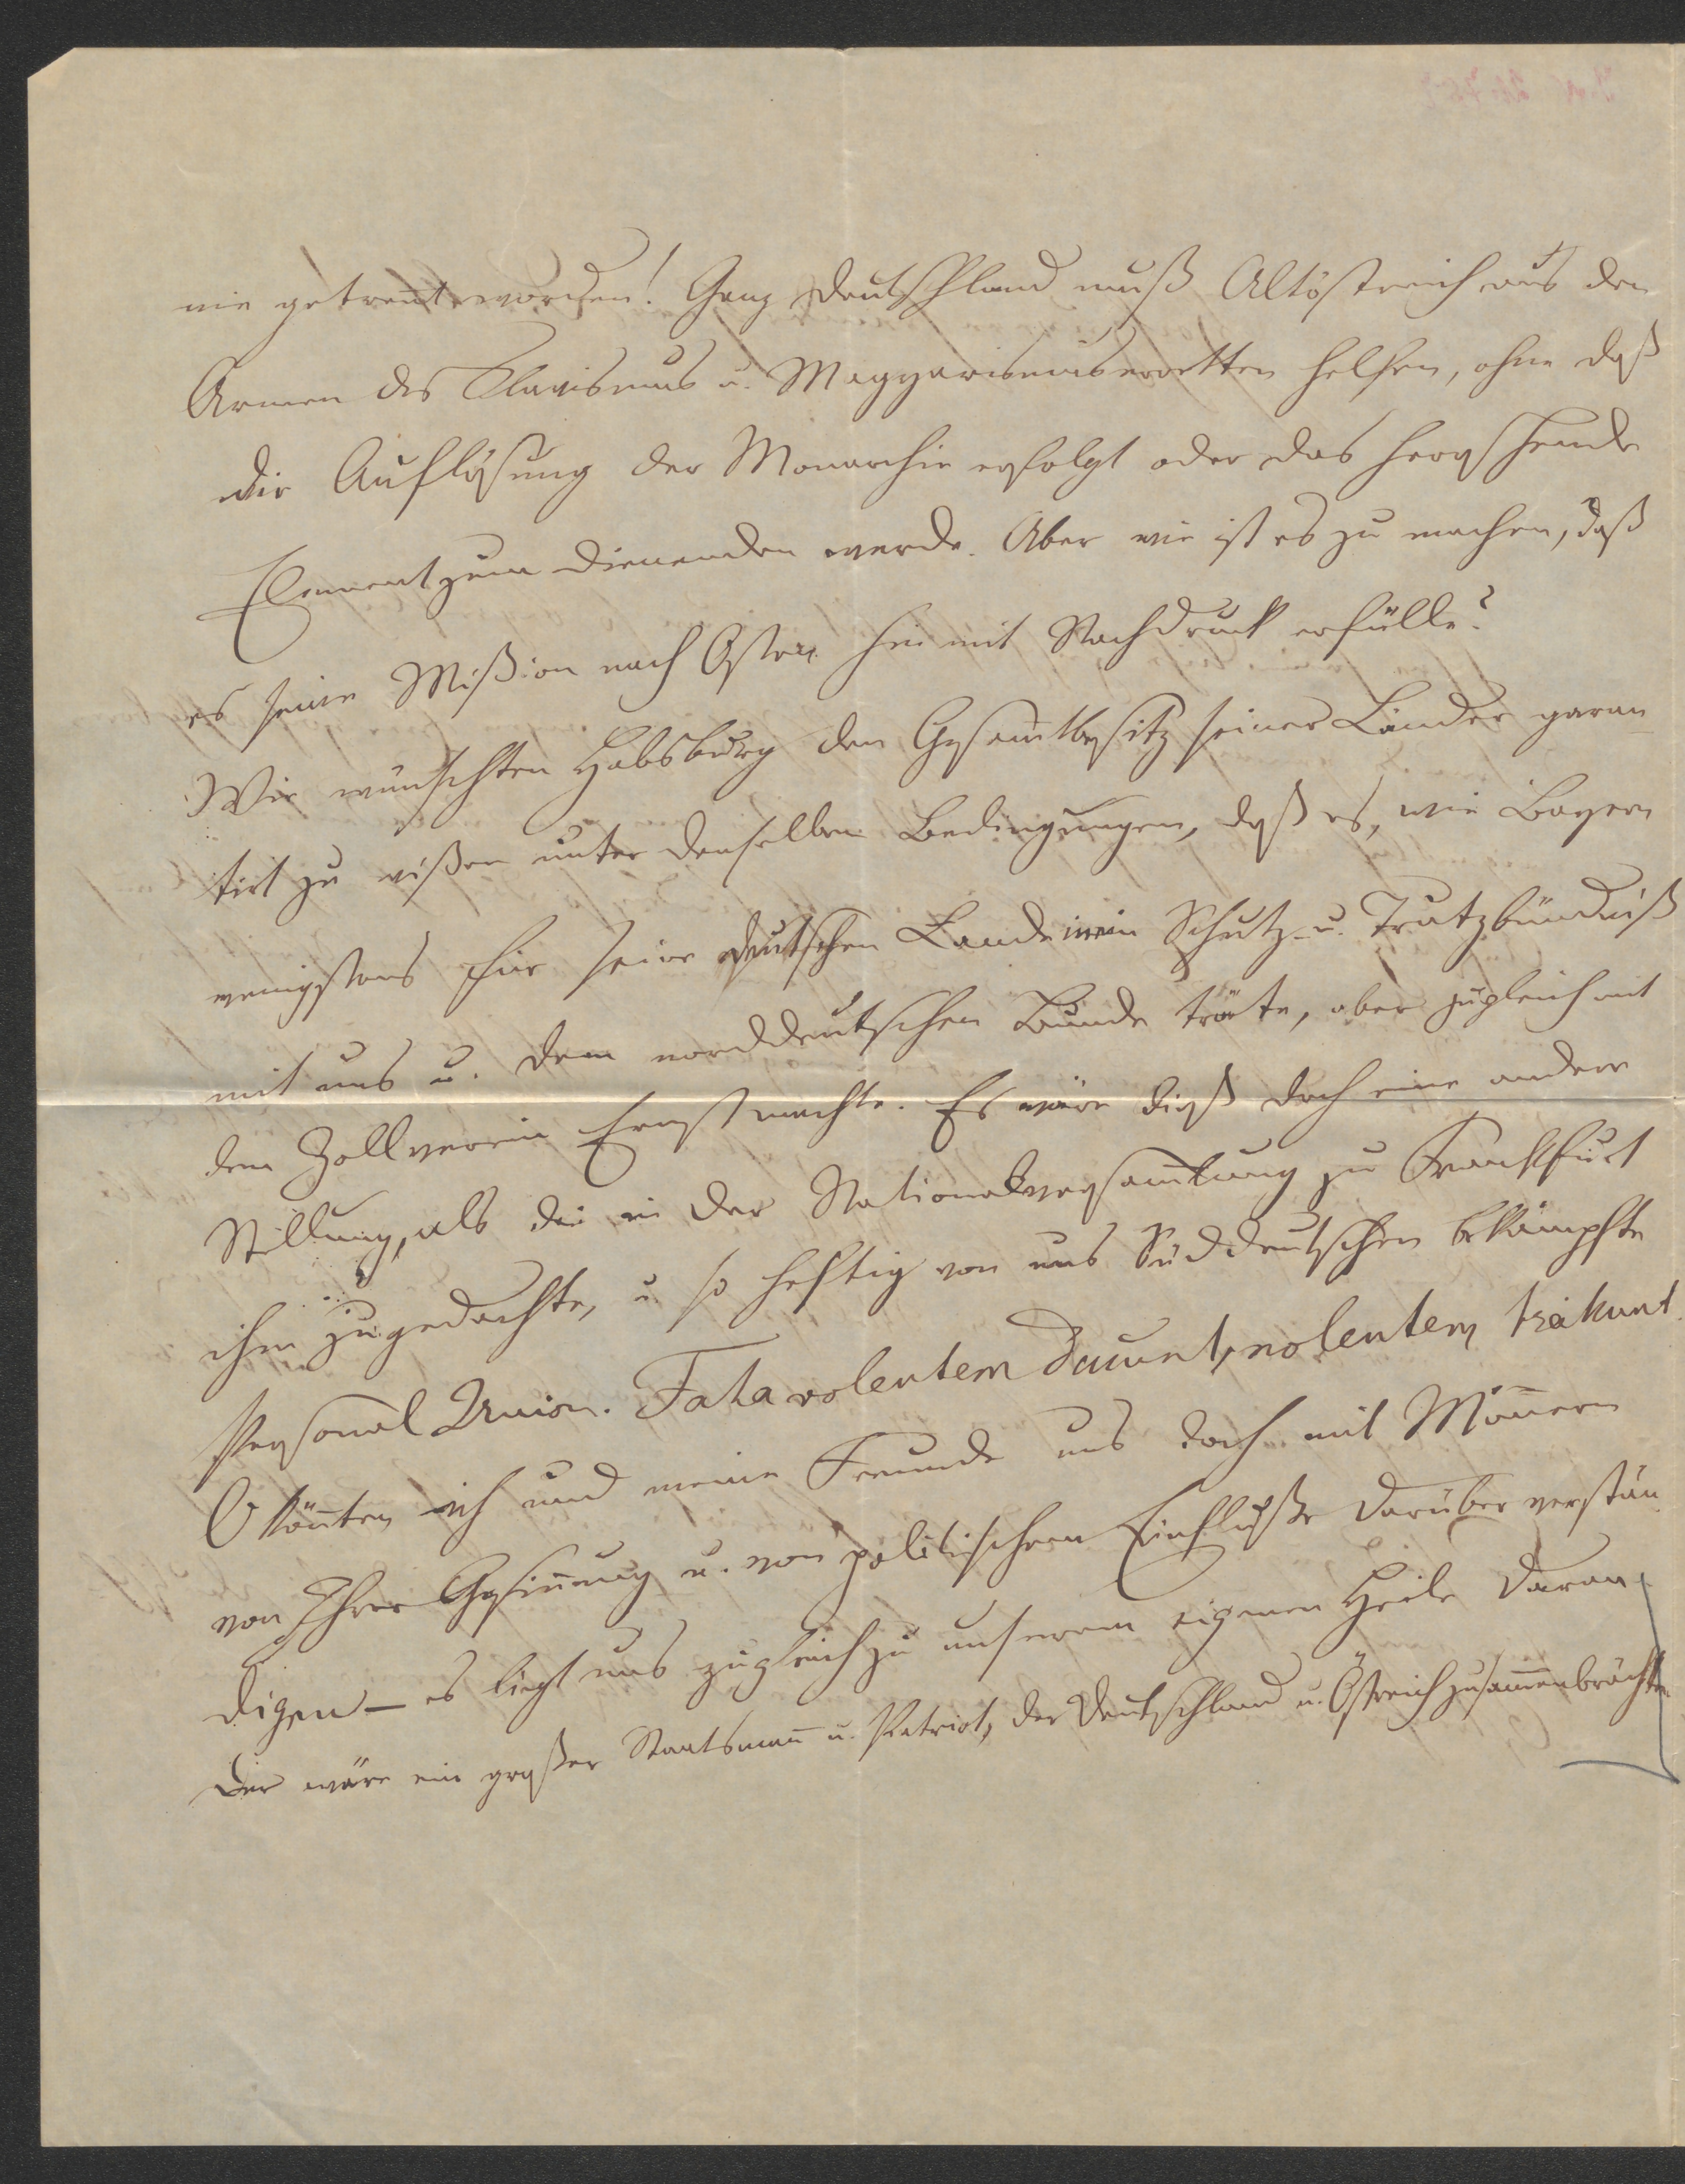 nie getrent worden! Ganz Deutschland muß Altöstreich aus den
Armen des Slavismus u. Magyarismus erretten helfen, ohne daß
die Auflösung der Monarchie erfolgt oder das herrschende
Element zum dienenden werde. Aber wie ist es zu machen, daß
es seine Mißion nach Osten hin mit Nachdruck erfülle?
Wir wünschten Habsburg den Gesamtbesitz seiner Länder garan-
tirt zu wißen unter denselben Bedingungen, daß es, wie Bayern
wenigstens für seine deutschen Lande in ein Schutz- u. Trutzbündniß
mit uns u. dem norddeutschen Bunde träte, aber zugleich mit
dem Zollverein Ernst machte. Es wäre dieß doch eine andere
Stellung, als die in der Nationalversamlung zu Frankfurt
ihm zugedachte, u. so heftig von uns Süddeutschen bekämpfte
Personal Union. Fata volentem ducunt, nolentem trahunt.
O könten ich und meine Freunde uns doch mit Mänern
von Ihrer Gesinung u. von politischem Einfluße darüber verstän
digen — es liegt uns zugleich zu unserem eigenen Heile daran.
Der wäre ein großer Staatsman u. Patriot, der Deutschland u. Östreich zusamenbrächte